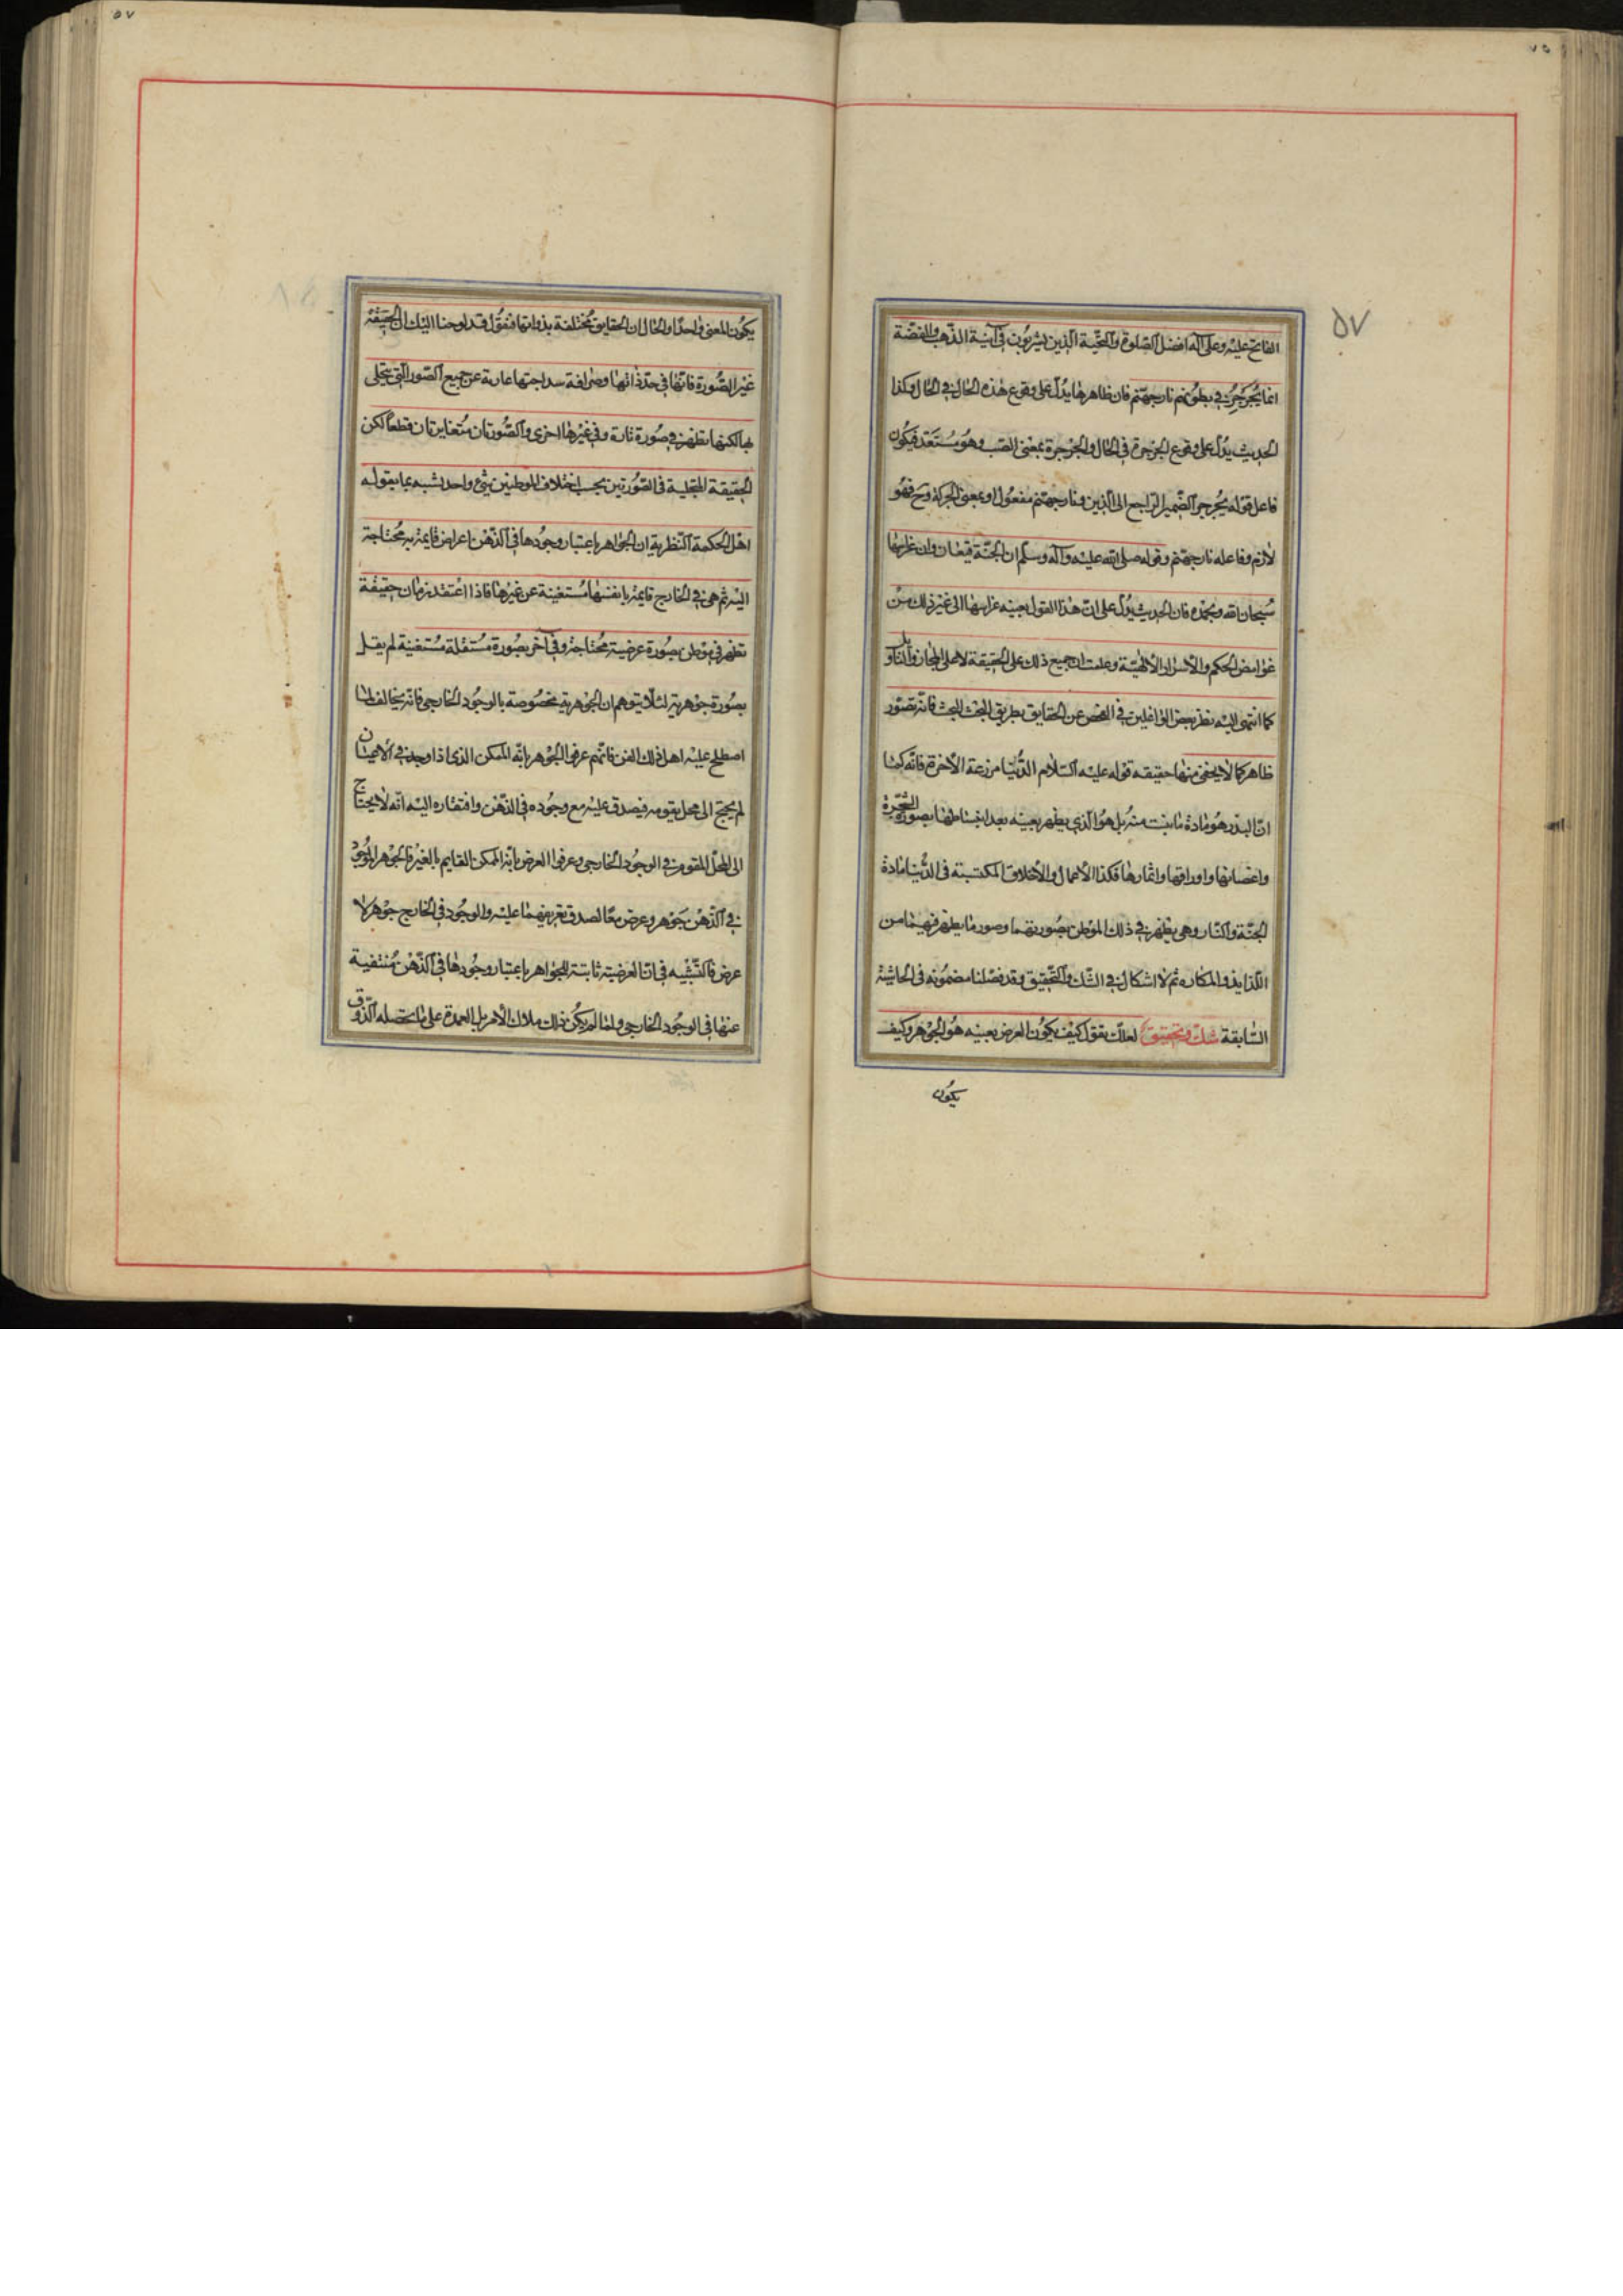 ٥٧
الفاتح عليه وعلى آله افضل الصلوة والتحية الذين يشربون في آنية الذهب والفضة
انما يجرجر في بطونهم نار جهنم فان ظاهرها يدل على وقوع هذه الحال في الحال وكذا
الحديث يدل على وقوع الجرجرة في الحال والجرجرة بمعنى الصب وهو مستعد فيكون
فاعل قوله يجرجر الضمير الراجع الى الذين ونار جهنم مفعول او بمعنى الحركة وح فهو
لازم وفاعله نار جهنم وقوله صلى الله عليه وآله وسلم ان الجنة قيعان وان غراسها
سبحان الله وبحمده فان الحديث يدل على ان هذا القول بعينه غراسها الى غير ذلك من
غوامض الحكم والاسرار الالهية وعلمت ان جميع ذلك على الحقيقة لا على المجاز والتأويل
كما انتهى اليه نظر بعض الواغلين في الفحص عن الحقايق بطريق البحث البحت فانه تصور
ظاهر كما لا يخفى منها حقيقه قوله عليه السلام الدنيا مزرعة الاخرة فانه كما
ان البذر هو مادة ما ينبت منه بل هو الذي يظهر بعينه بعد انبساطها بصورة الشجرة
واغصانها واوراقها واثمارها فكذا الاعمال والاخلاق المكتسبة في الدنيا مادة
الجنة والنار وهي يظهر في ذلك الموطن بصورتهما وصور ما يظهر فيهما من
اللذايذ والمكاره ثم لا اشكال في الشك والتحقيق وقد فصلنا مضمونه في الحاشية
السابقة شك وتحقيق لعلك تقول كيف يكون العرض بعينه هو الجوهر وكيف
يكون
٥٧
يكون المعنى واحدا والحال ان الحقايق مختلفة بذواتها فنقول قد لوحنا اليك ان الحقيقة
غير الصورة فانها في حد ذاتها وصرافة سذاجتها عارية عن جميع الصور التي يتجلى
بها لكنها تظهر في صورة تارة وفي غيرها اخرى والصورتان متغايرتان قطعا لكن
الحقيقة المتجلية في الصورتين بحسب اختلاف الموطنين شئ واحد شبه بما يقوله
اهل الحكمة النظرية ان الجواهر باعتبار وجودها في الذهن اعراض قايمة به محتاجة
اليه ثم هي في الخارج قايمة بانفسها مستغنية عن غيرها فاذا اعتقدت ان حقيقة
تظهر في موطن بصورة عرضية محتاجة وفي آخر بصورة مستقلة مستغنية لم يقل
بصورة جوهرية لئلا يتوهم ان الجوهرية مخصوصة بالوجود الخارجي فانه يخالف لما
اصطلح عليه اهل ذلك الفن فانهم عرفوا الجوهر بانه الممكن الذي اذا وجد في الاعيان
لم يحتج الى محل يقومه فيصدق عليه مع وجوده في الذهن وافتقاره اليه انه لا يحتاج
الى المحل المقوم في الوجود الخارجي وعرفوا العرض بانه الممكن القايم بالغير فالجوهر الموجود
في الذهن جوهر وعرض معا لصدق تعريفهما عليه والموجود في الخارج جوهر لا
عرض فالتشبيه في ان العرضية ثابتة للجواهر باعتبار وجودها في الذهن منتفية
عنها في الوجود الخارجي ولما لم يكن ذلك ملاك الامر بل العمدة على ما يحصله الذوق